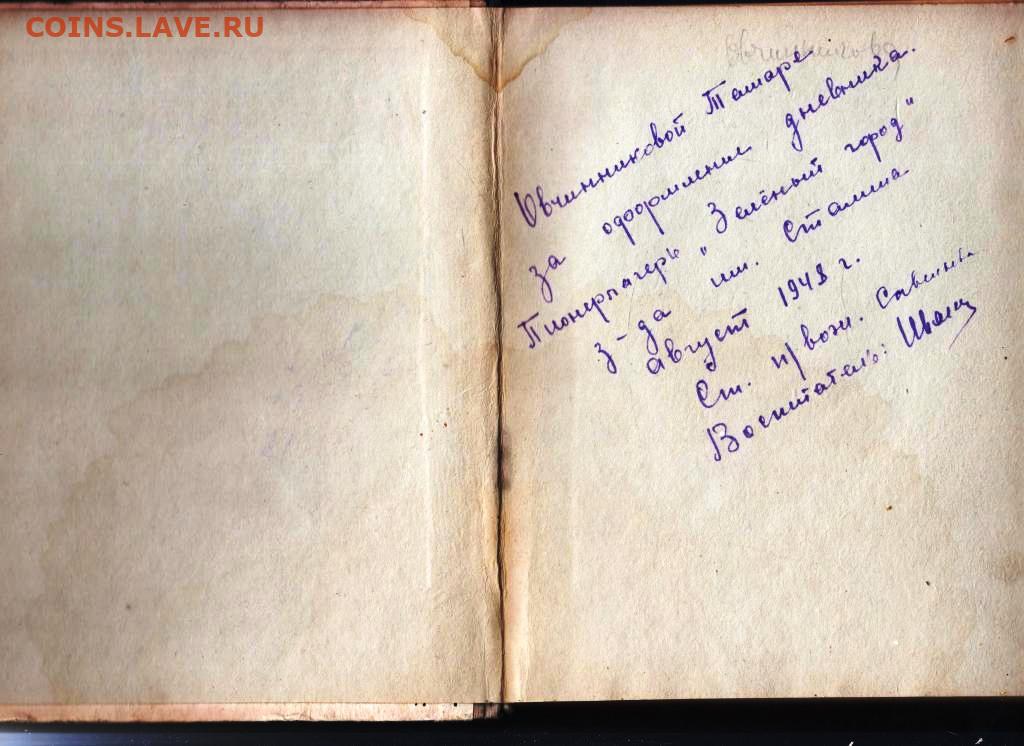 COINS.LAVE.RU
Овчинникова
Овчинниковой Тамаре
за оформление дневника.
Пионерлагерь „Зелёный город"
з-да им. Сталина
Август 1948 г.
Ст. п/вож.
Воспитатель: